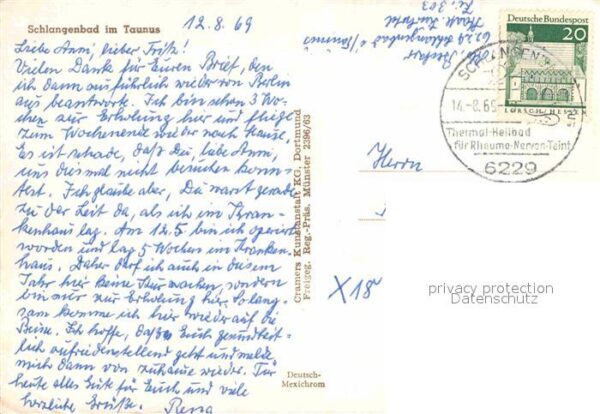 Schlangenbad im Taunus
12.8.69
Liebe Anni, lieber Fritz!
Vielen Dank für Euren Brief, den
ich dann ausführlich wieder von Berlin
aus beantworte. Ich bin schon 3 Wo-
chen zur Erholung hier und fliege
zum Wochenende wieder nach Hause.
Es ist schade, daß Du, liebe Anni,
uns diesmal nicht besuchen konn-
test. Ich glaube aber, Du warst gerade
zu der Zeit da, als ich im Kran-
kenhaus lag. Am 12.5 bin ich operiert
worden und lag 5 Wochen im Kranken-
haus. Daher darf ich auch in diesem
Jahr hier keine Kur machen, sondern
bin nur zur Erholung hier. So lang-
sam komme ich hier wieder auf die
Beine. Ich hoffe, daß es Euch gesundheit-
lich zufriedenstellend geht und melde
mich dann von zuhause wieder. Für
heute alles Gute für Euch und viele
herzliche Grüße.
Cramers Kunstanstalt KG, Dortmund
Freigeg. Reg.-Präs. Münster 2396/63
Deutsch-
Mexichrom
6229 Schlangenbad / Taunus
Deutsche Bundespost
20
14.-8.69
Thermal-Heilbad
für Rheuma-Nerven-Teint
6229
Herrn
X18
privacy protection
Datenschutz